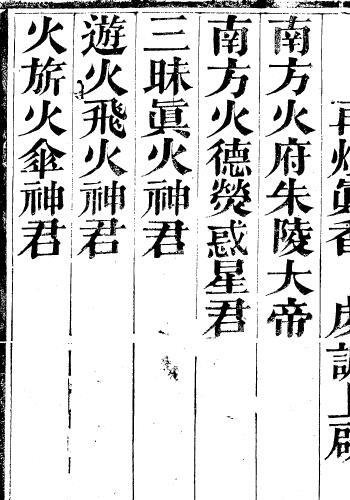 再炷眞香　虔誠上啟
南方火府朱陵大帝
南方火德熒惑星君
三昧眞火神君
遊火飛火神君
火旂火傘神君